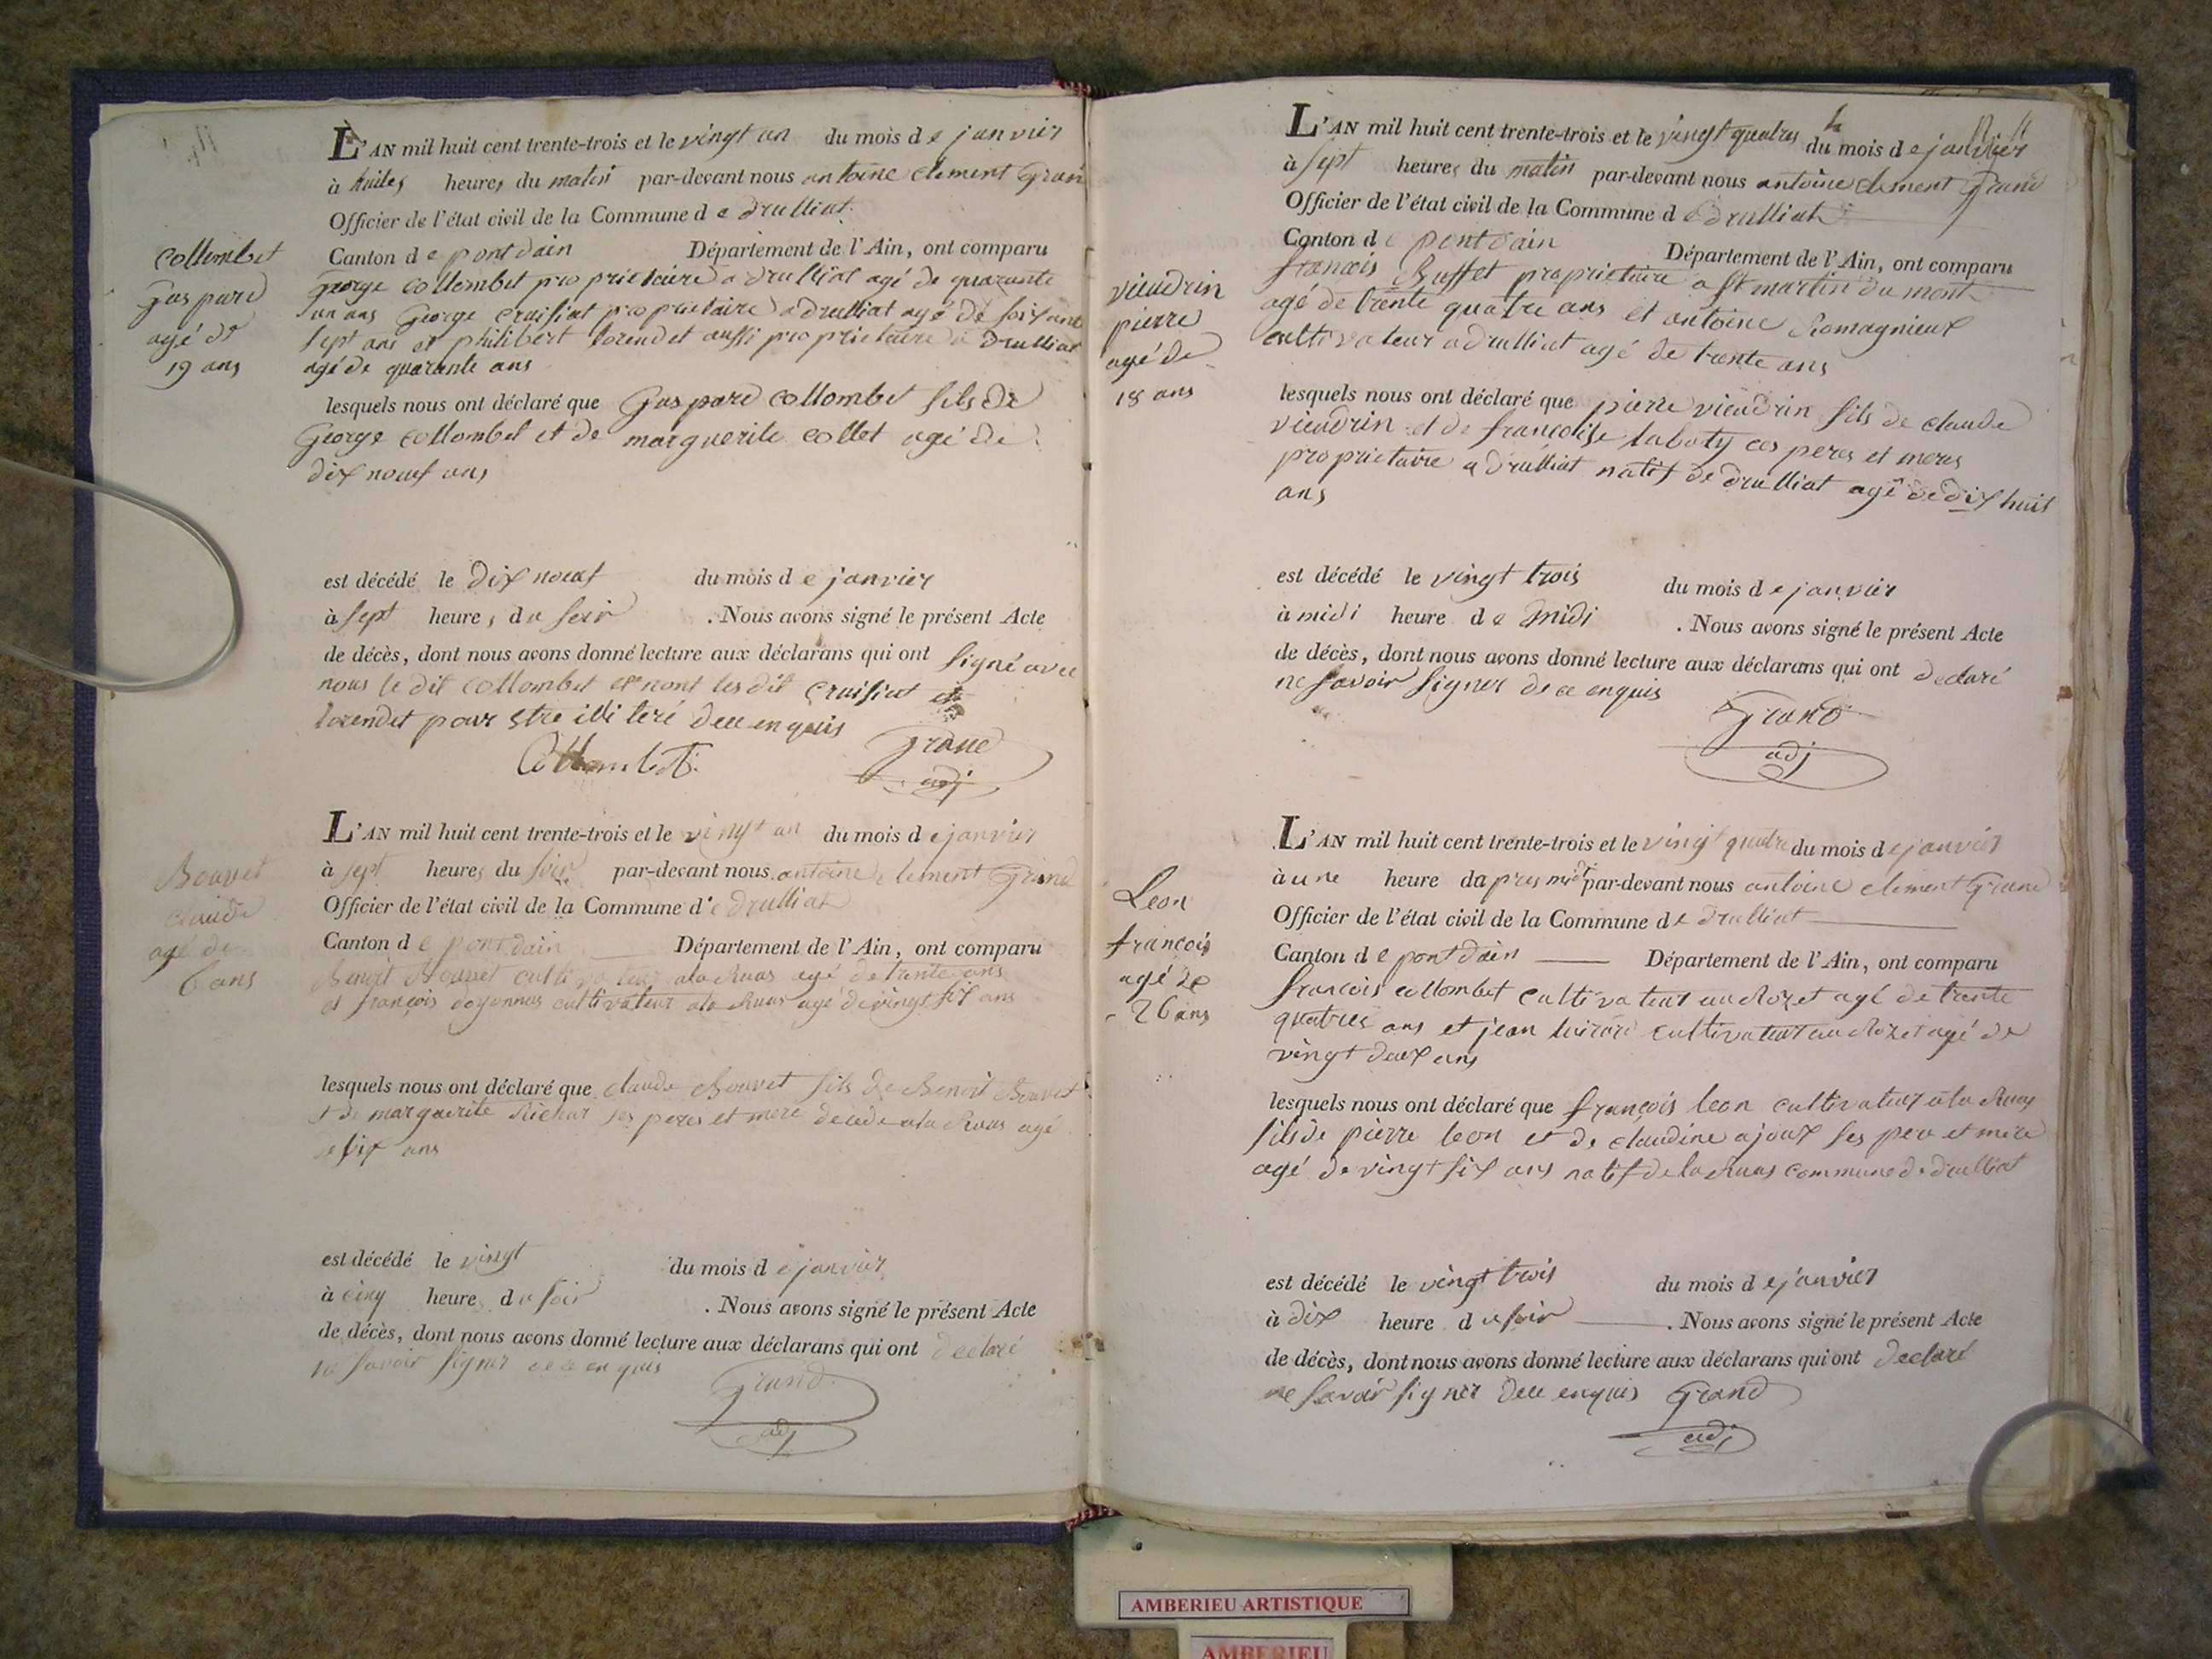 L'AN mil huit cent trente-trois et le vingt un du mois de janvier
à huites heures du matin par-devant nous antoine clement Gran
Officier de l'état civil de la Commune de drulliat
Canton de pontdain Département de l'Ain, ont comparu
Collombet
Gaspard
agé de
19 ans
george collombet proprietaire a drulliat agé de quarante
un ans George cruisiat proprietaire a drulliat agé de soixante
sept ans et philibert torendet aussi proprietaire a drulliat
agé de quarante ans
lesquels nous ont déclaré que Gaspard collombet fils de
George collombet et de marguerite collet agé de
dix nouf ans
est décédé le dix nouf du mois de janvier
à sept heures du soir . Nous avons signé le présent Acte
de décès, dont nous avons donné lecture aux déclarans qui ont signé avec
nous le dit collombet et nont les dit cruisiat et
torendet pour etre illiteré dece enquis
Collombet Grand
adj
L'AN mil huit cent trente-trois et le vingt un du mois de janvier
à sept heures du soir par-devant nous antoine clement Grand
Officier de l'état civil de la Commune de drulliat
Canton de pontdain Département de l'Ain, ont comparu
Bouvet
claude
agé de
6 ans
Benoit Bouvet cultivateur ala Ruas agé de trente ans
et françois doyonnas cultivateur ala Ruas agé de vingt six ans
lesquels nous ont déclaré que claude Bouvet fils de Benoit Bouvet
et de marguerite Richar ses peres et mere decede ala Ruas agé
de six ans
est décédé le vingt du mois de janvier
à cinq heures du soir . Nous avons signé le présent Acte
de décès, dont nous avons donné lecture aux déclarans qui ont declaré
ne savoir signer dece enquis
Grand
adj
L'AN mil huit cent trente-trois et le vingt quatres du mois de janvier
à sept heures du matin par-devant nous antoine clement Grand
Officier de l'état civil de la Commune de drulliat
Canton de pontdain Département de l'Ain, ont comparu
vieudrin
pierre
agé de
18 ans
francois Buffet proprietaire a St martin du mont
agé de trente quatre ans et antoine Romagnieux
cultivateur a drulliat agé de trente ans
lesquels nous ont déclaré que pierre vieudrin fils de claude
vieudrin et de françoise labaty ces peres et meres
proprietaire a drulliat natif de drulliat agé de dix huit
ans
est décédé le vingt trois du mois de janvier
à midi heure de midi . Nous avons signé le présent Acte
de décès, dont nous avons donné lecture aux déclarans qui ont declaré
ne savoir signer de ce enquis
Grand
adj
L'AN mil huit cent trente-trois et le vingt quatre du mois de janvier
à une heure dapres midi par-devant nous antoine clement Grand
Officier de l'état civil de la Commune de drulliat
Canton de pontdain Département de l'Ain, ont comparu
Leon
francois
agé de
26 ans
francois collombet cultivateur au Rozet agé de trente
quatres ans et jean cultivateur au Rozet agé de
vingt deux ans
lesquels nous ont déclaré que françois leon cultivateur a la Ruas
fils de pierre leon et de claudine ajoux ses pere et mere
agé de vingt six ans natif de la Ruas commune de drulliat
est décédé le vingt trois du mois de janvier
à dix heure du soir . Nous avons signé le présent Acte
de décès, dont nous avons donné lecture aux déclarans qui ont declaré
ne savoir signer dece enquis Grand
adj
AMBERIEU ARTISTIQUE
AMBERIEU